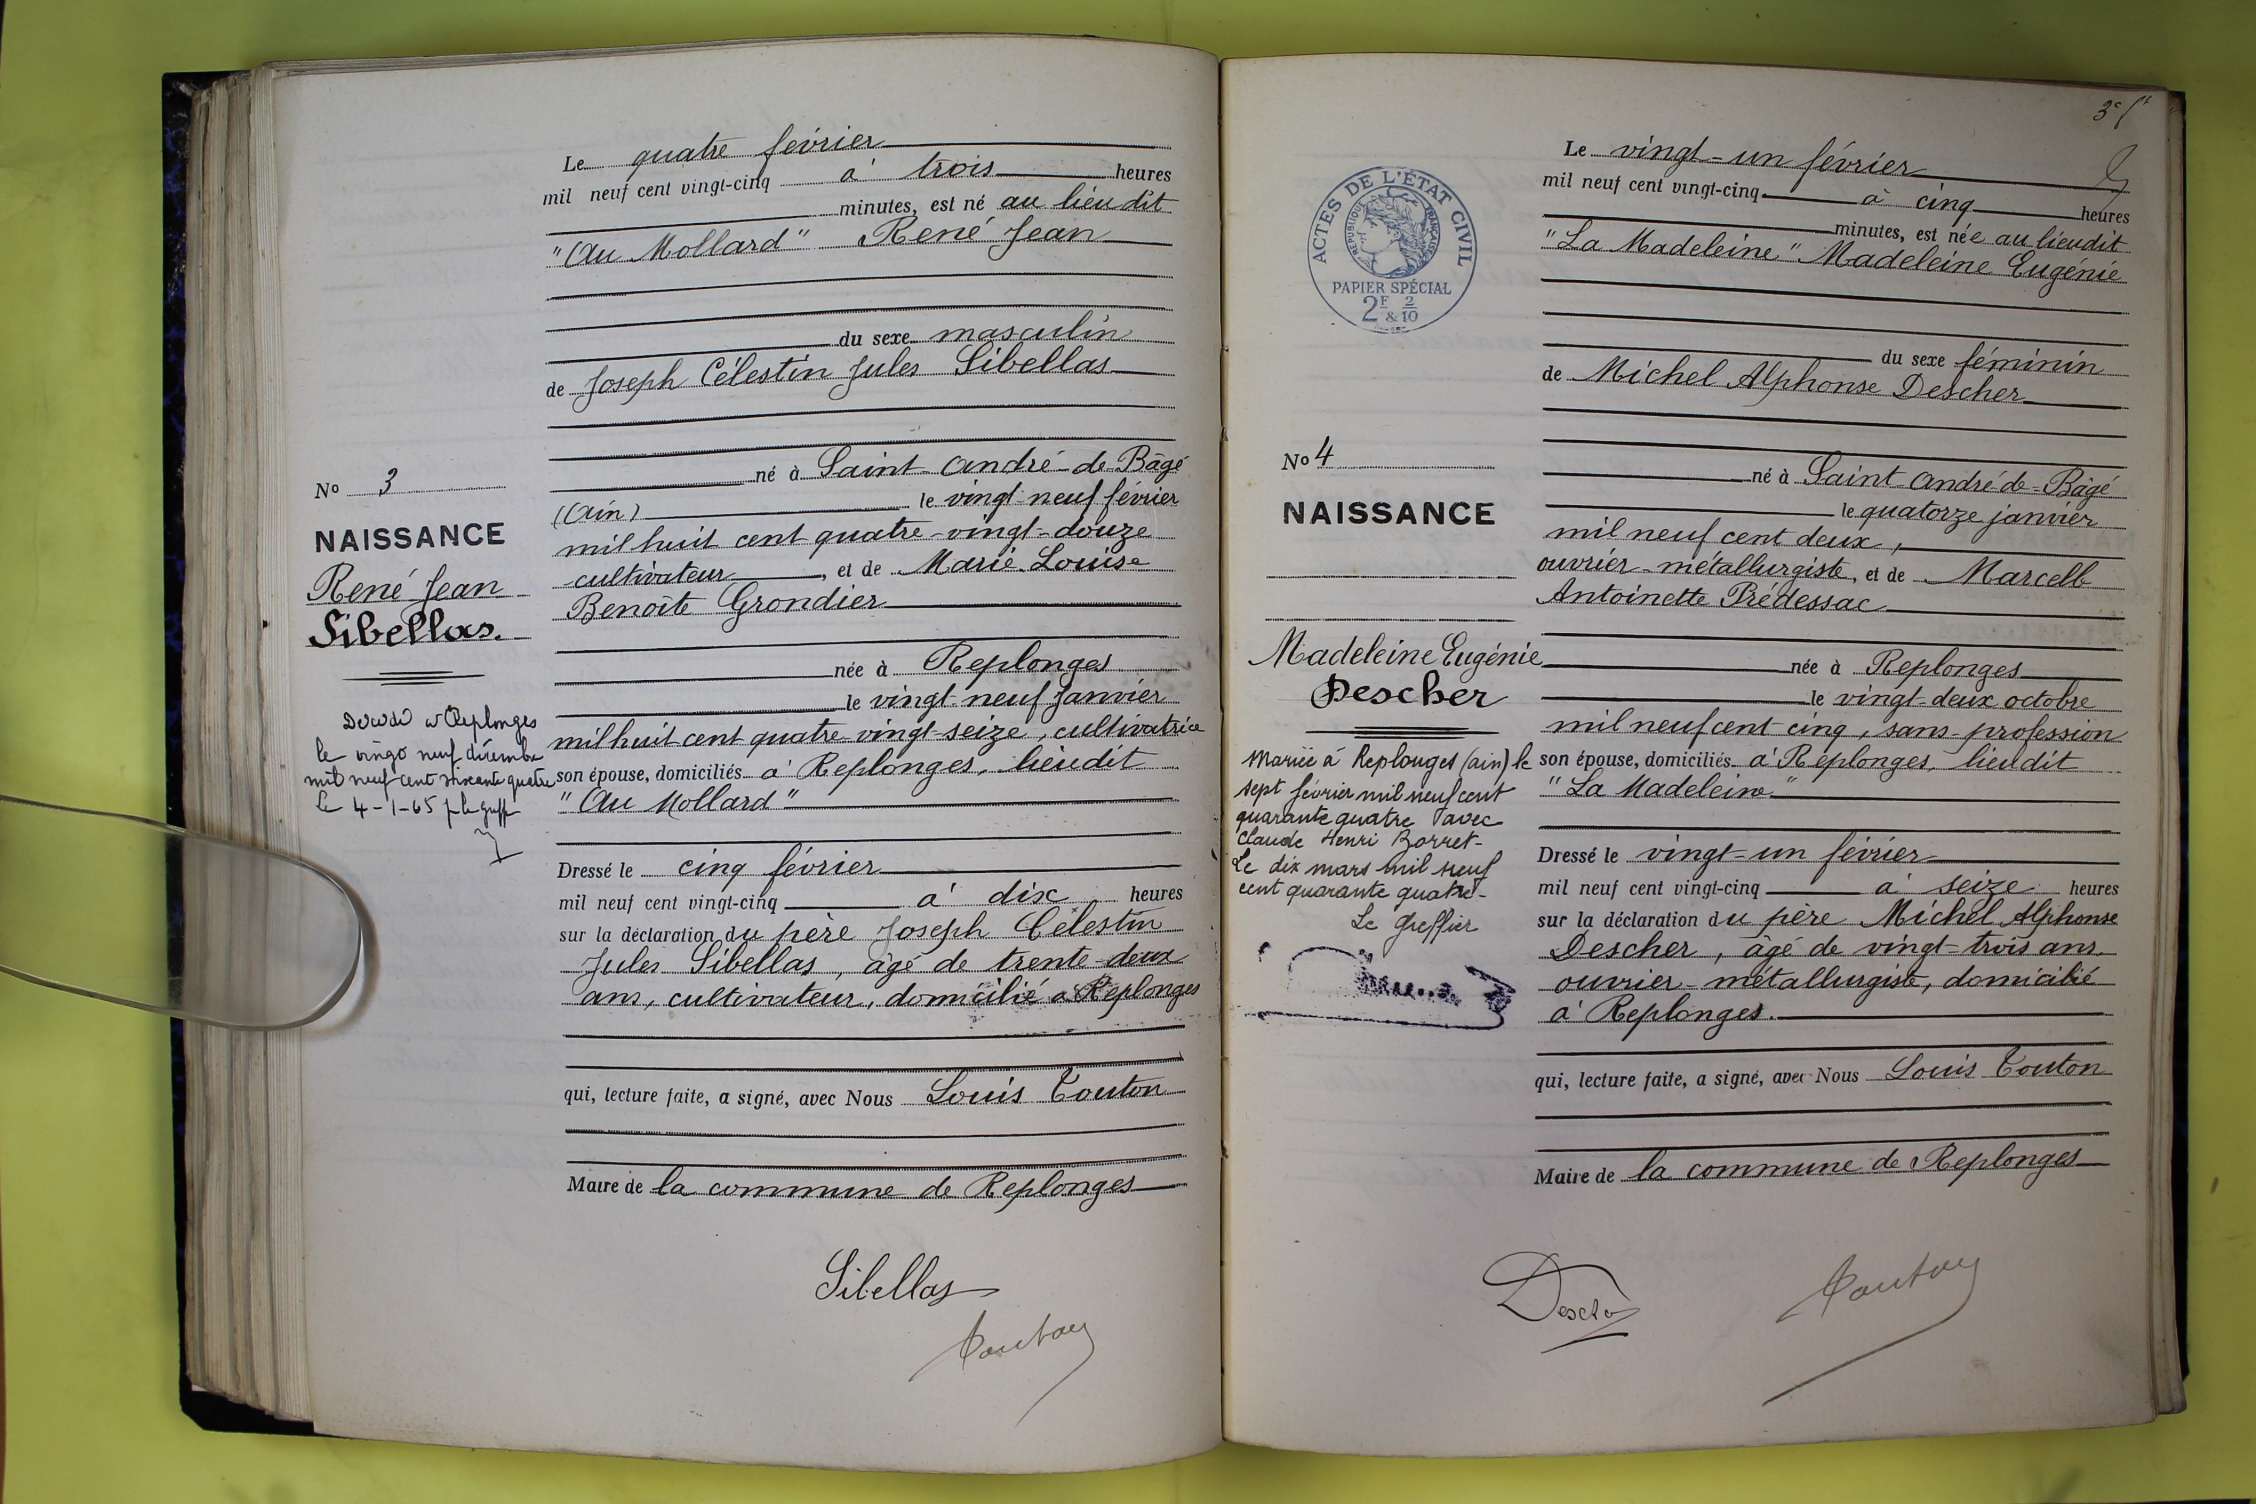 Le quatre février
mil neuf cent vingt-cinq à trois heures
minutes, est né au lieu dit
"Au Mollard" René Jean
du sexe masculin
de Joseph Célestin Jules Sibellas
né à Saint-André-de-Bâgé
(Ain) le vingt-neuf février
mil huit cent quatre-vingt-douze
cultivateur, et de Marie Louise
Benoîte Grondier
née à Replonges
le vingt-neuf janvier
mil huit cent quatre-vingt-seize, cultivatrice
son épouse, domiciliés à Replonges, lieudit
"Au Mollard"
Dressé le cinq février
mil neuf cent vingt-cinq à dix heures
sur la déclaration du père Joseph Célestin
Jules Sibellas, âgé de trente-deux
ans, cultivateur, domicilié à Replonges
qui, lecture faite, a signé, avec Nous Louis Touton
Maire de la commune de Replonges
Sibellas
Touton
No 3
NAISSANCE
René Jean
Sibellas.
Décédé à Replonges
le vingt neuf décembre
mil neuf cent soixante quatre
le 4-1-65 p le greff
3e ft
Le vingt-un février
mil neuf cent vingt-cinq à cinq heures
minutes, est née au lieudit
"La Madeleine" Madeleine Eugénie
du sexe féminin
de Michel Alphonse Descher
né à Saint André-de-Bâgé
le quatorze janvier
mil neuf cent deux,
ouvrier-métallurgiste, et de Marcelle
Antoinette Prédessac
née à Replonges
le vingt-deux octobre
mil neuf cent cinq, sans profession
son épouse, domiciliés à Replonges, lieudit
"La Madeleine"
Dressé le vingt-un février
mil neuf cent vingt-cinq à seize heures
sur la déclaration du père Michel Alphonse
Descher, âgé de vingt-trois ans,
ouvrier-métallurgiste, domicilié
à Replonges.
qui, lecture faite, a signé, avec Nous Louis Touton
Maire de la commune de Replonges
Descher
Touton
ACTES DE L'ÉTAT CIVIL
RÉPUBLIQUE FRANÇAISE
PAPIER SPÉCIAL
2F & 2/10
No 4
NAISSANCE
Madeleine Eugénie
Descher
Mariée à Replonges (ain) le
sept février mil neuf cent
quarante quatre avec
Claude Henri Borret-
Le dix mars mil neuf
cent quarante quatre-
Le Greffier